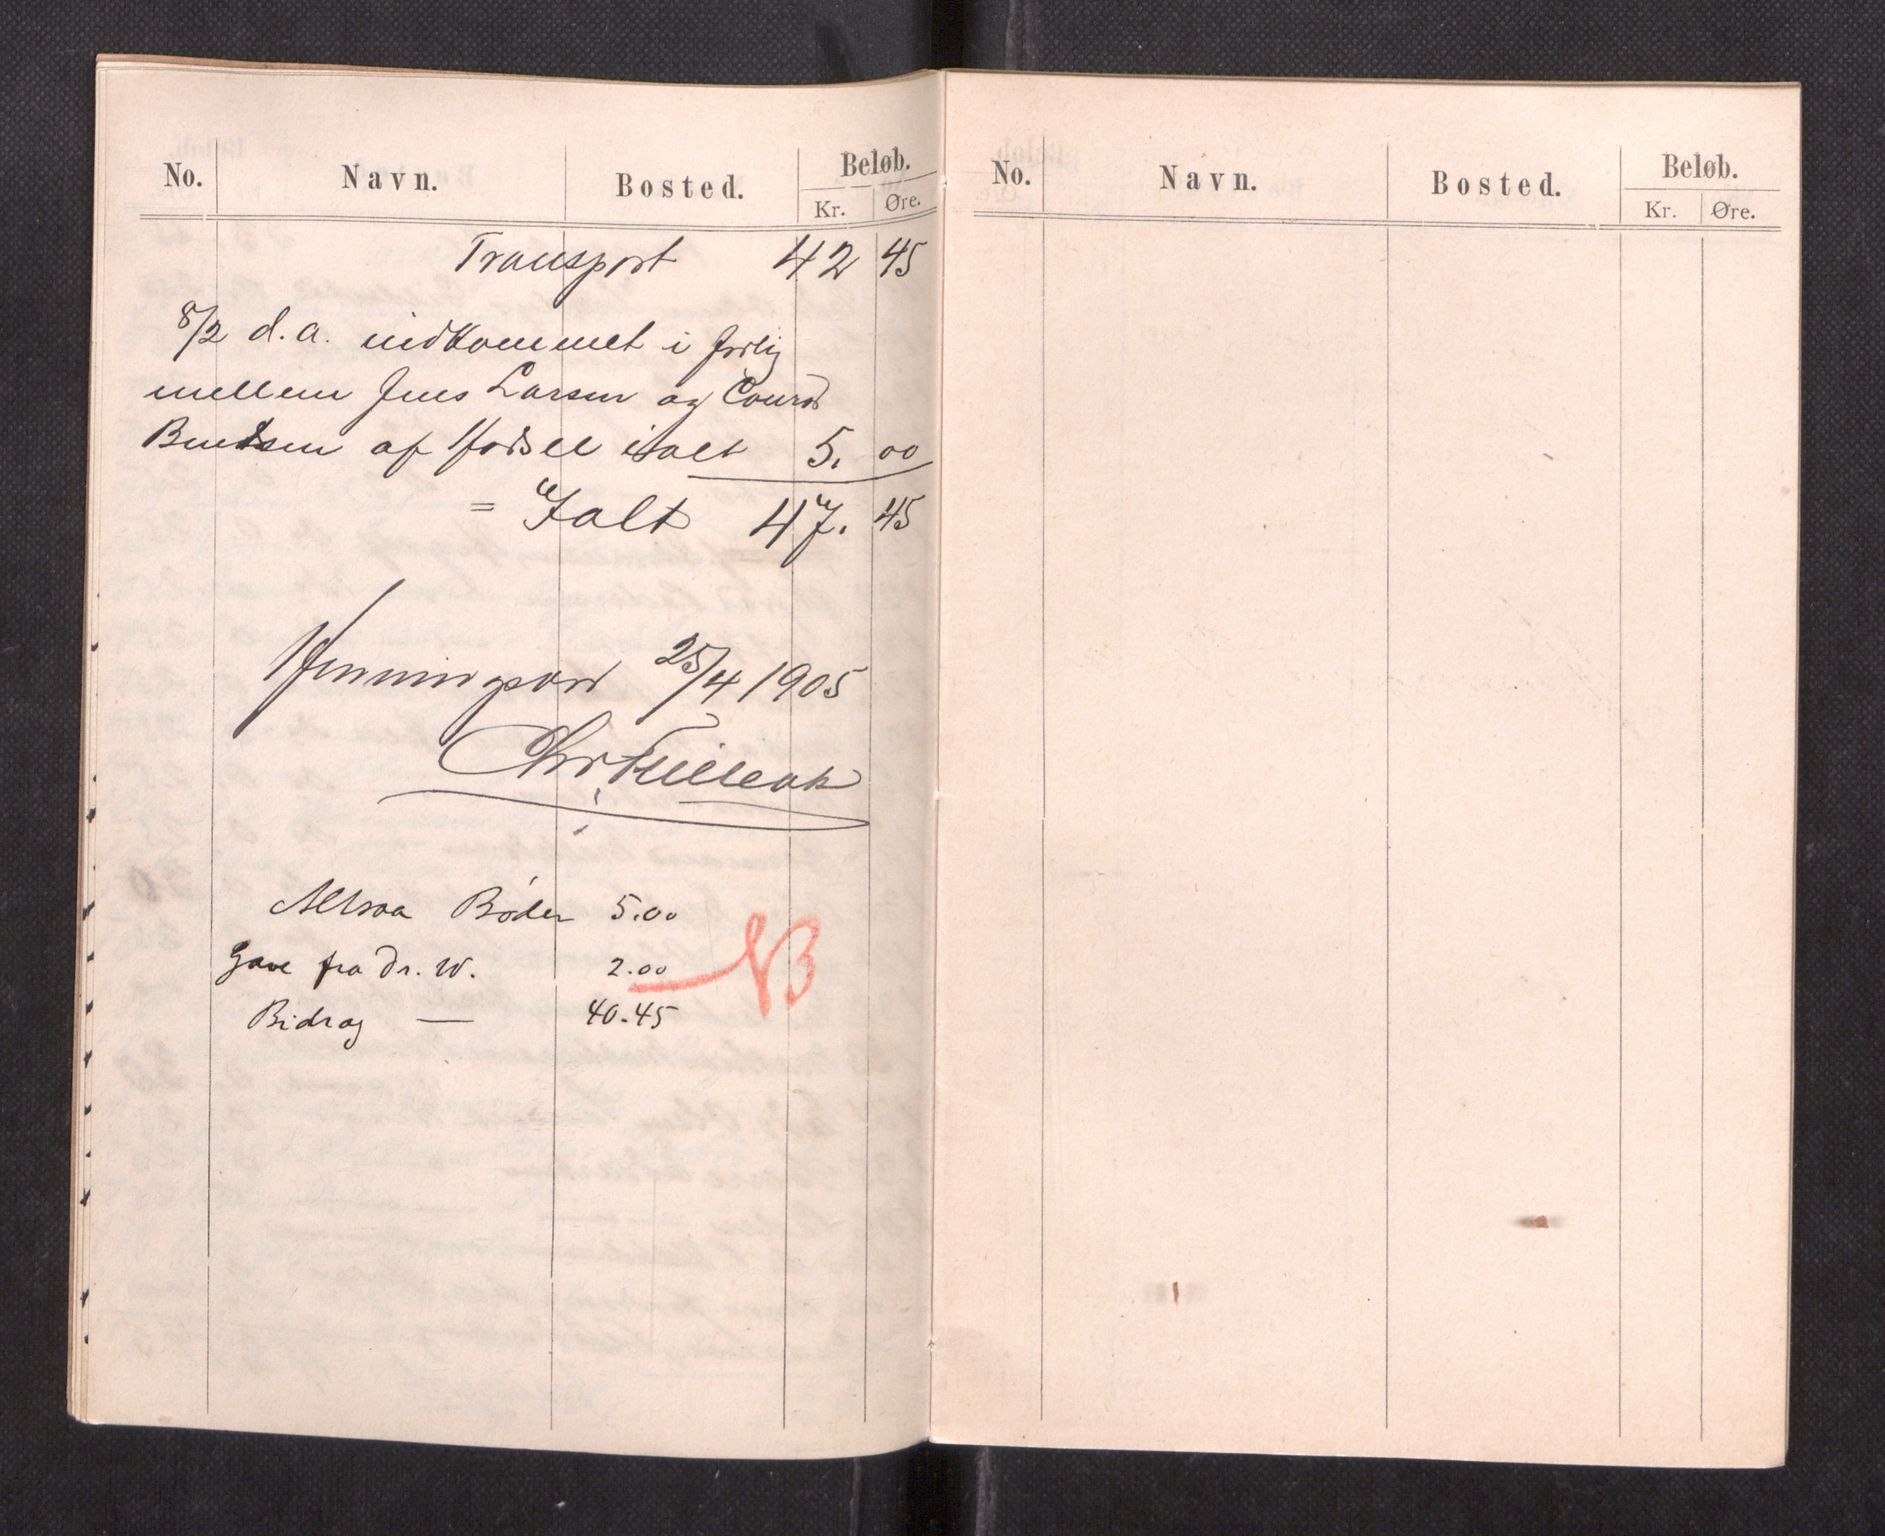 No. Navn. Bosted. Beløb.
Kr. Øre.
Transport 42 45
8/2 d. a. indkommet i forlig
mellem Jens Larsen og Conrad
Bentsen af Hodsel ialt 5. 00
= Ialt 47. 45
Henningsvær 25/4 1905
Chr.
Altsaa Bøder 5.00
Gave fra Dr. W. 2.00
NB
Bidrag — 40.45
No. Navn. Bosted. Beløb.
Kr. Øre.